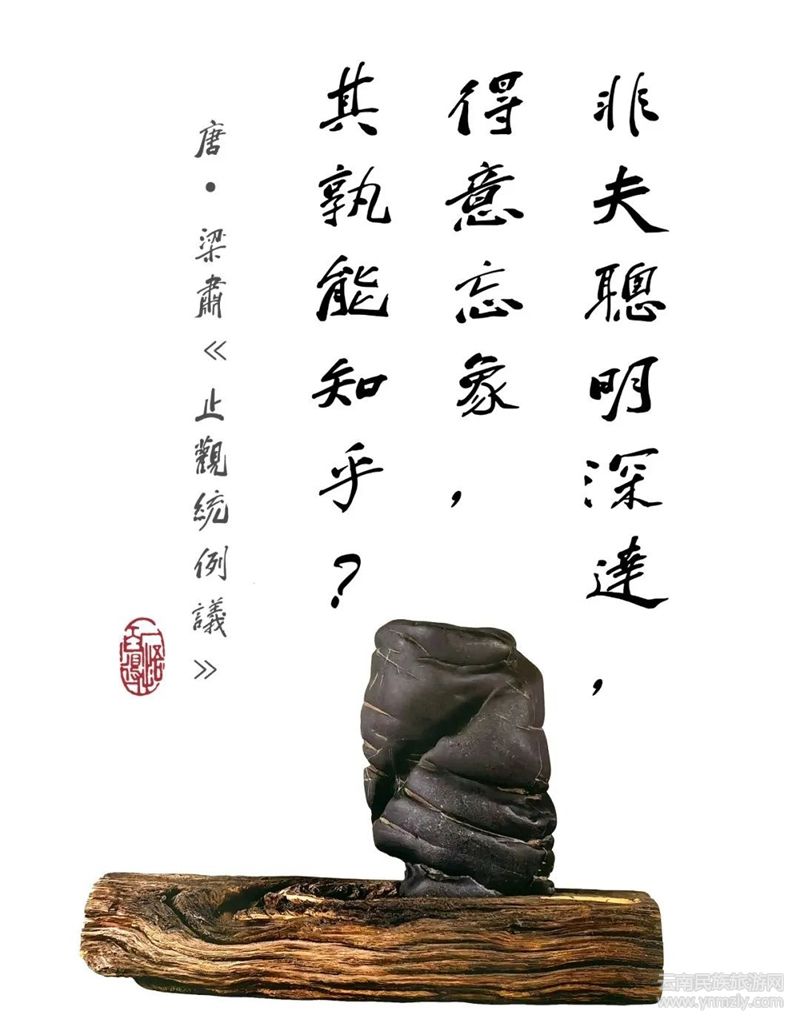 非夫聰明深達，
得意忘象，
其孰能知乎？
唐·梁肅《止觀統例議》
云南民族旅游网
www.ynmzly.com